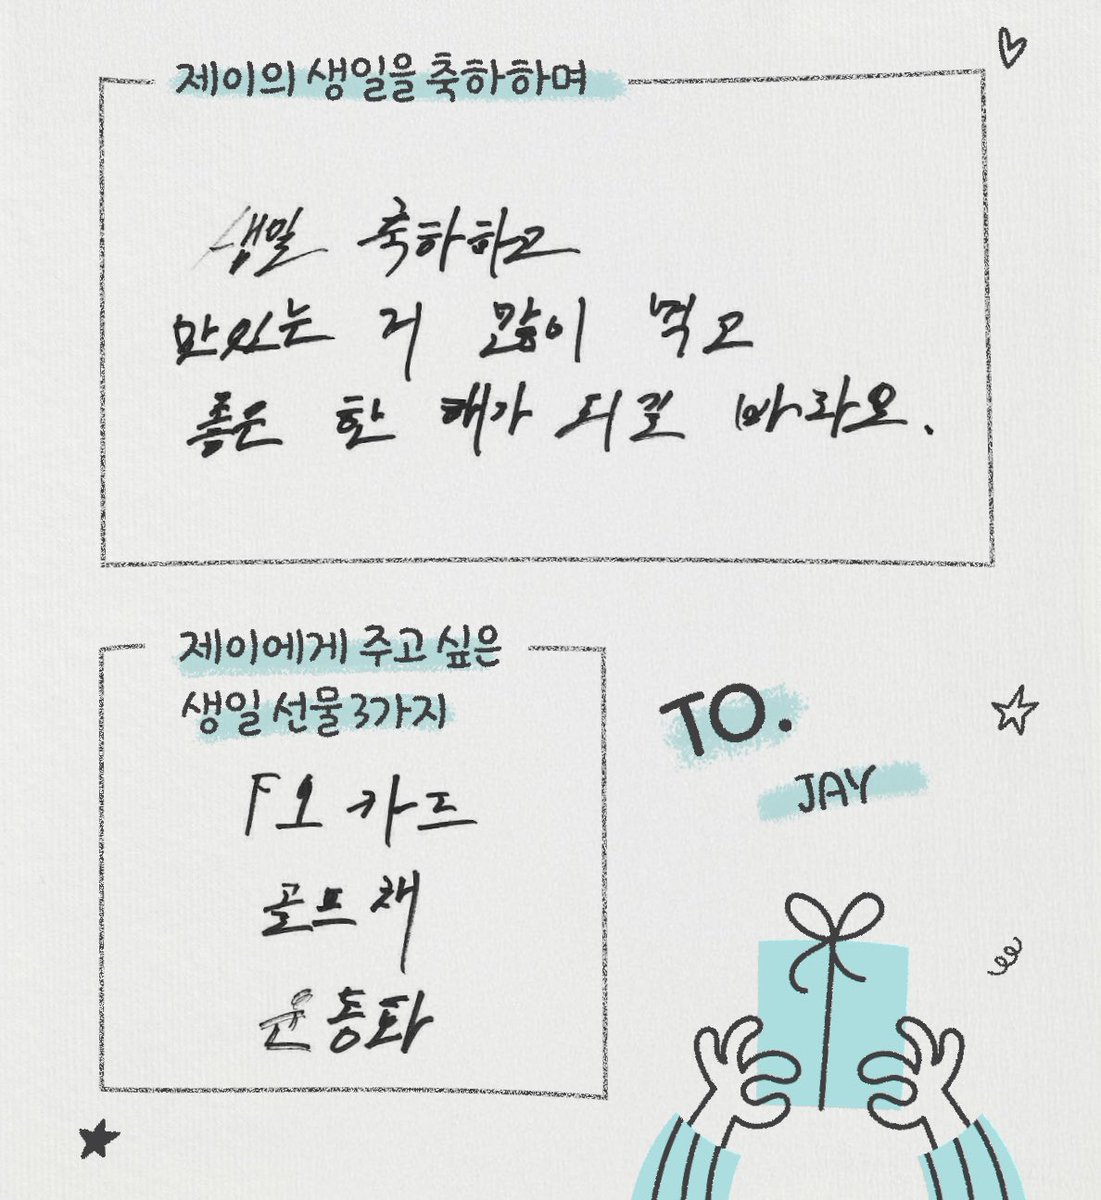 제이의 생일을 축하하며
생일 축하하고
맛있는 거 많이 먹고
좋은 한 해가 되길 바라오.
제이에게 주고 싶은
생일 선물 3가지
F1 카드
골프채
운동화
TO.
JAY